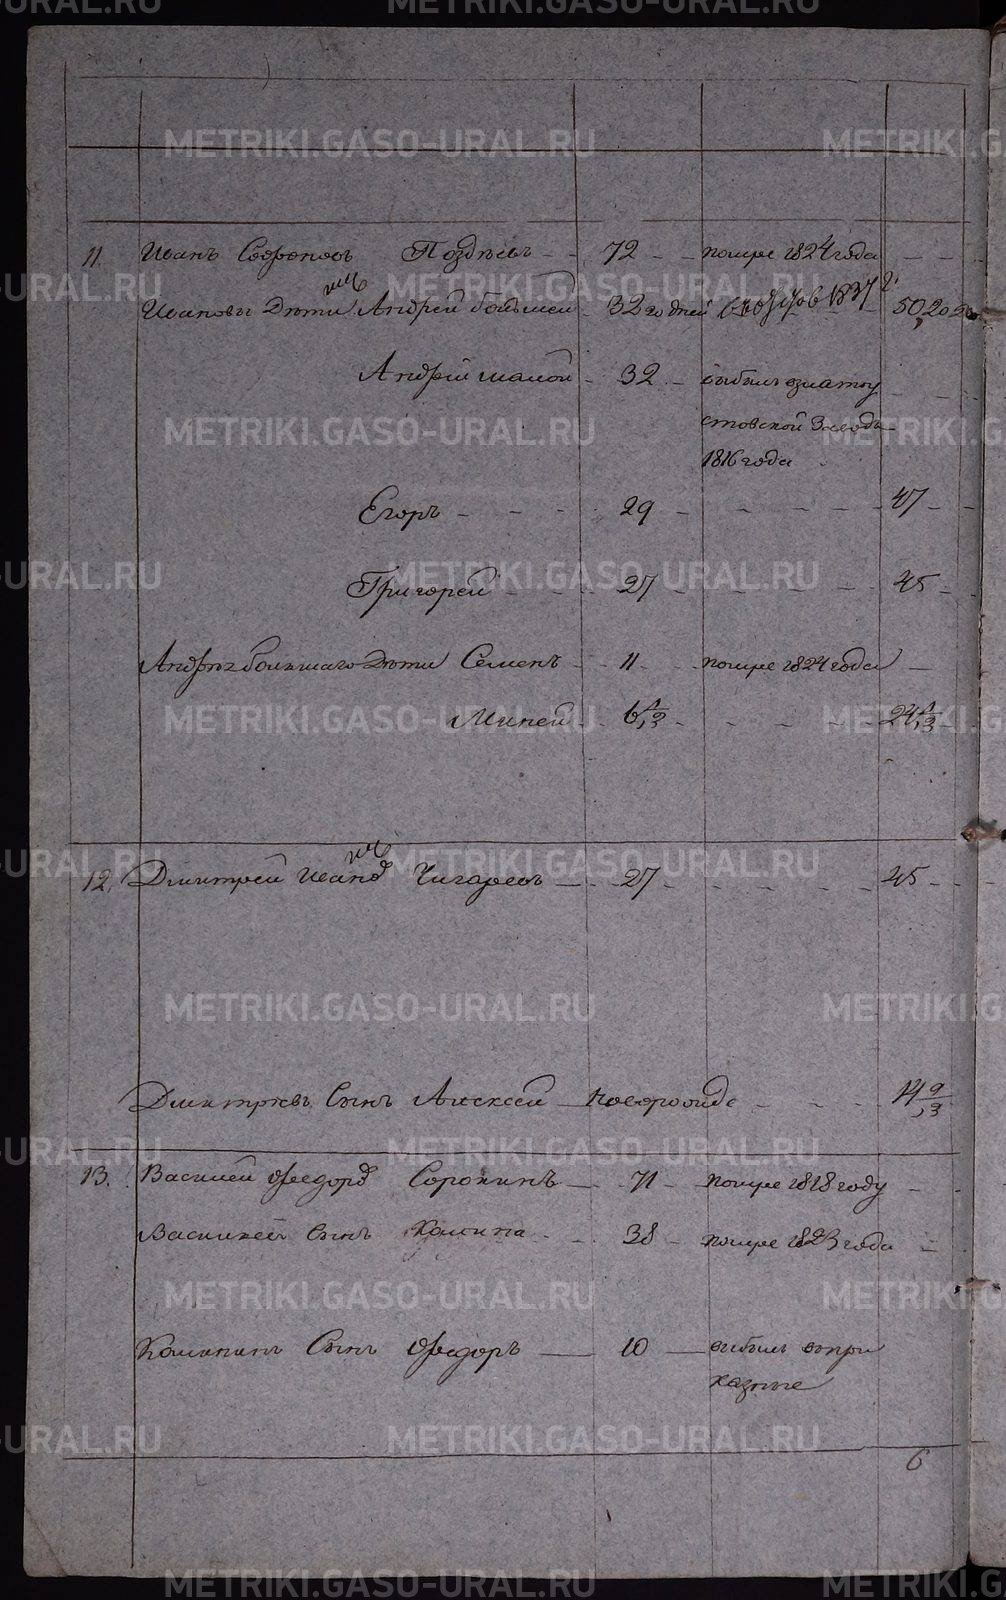 METRIKI.GASO-URAL.RU
11. Иванъ Софоновъ Позднѣевъ 72 помре 1824 года
Ивановы Дѣти Андрей большей 32 20 дней 1837 50, 20
Андрей малой 32 выбылъ взлатоу
стовской Заводъ
1816 года
Егоръ 29 47
Григорей 27 45
Андрея большаго Дѣти Семенъ 11 помре 1824 года
Миней 6 24
12. Дмитрей Иванов Чигаревъ 27 45
Дмитрѣевъ Сынъ Алексей 14 9/13
13. Василей Федоров Сорокинъ 71 помре 1818 году
Васильевъ Сынъ Козма 38 помре 1823 года
Козминъ Сынъ Федоръ 10 выбылъ впри
казные
6